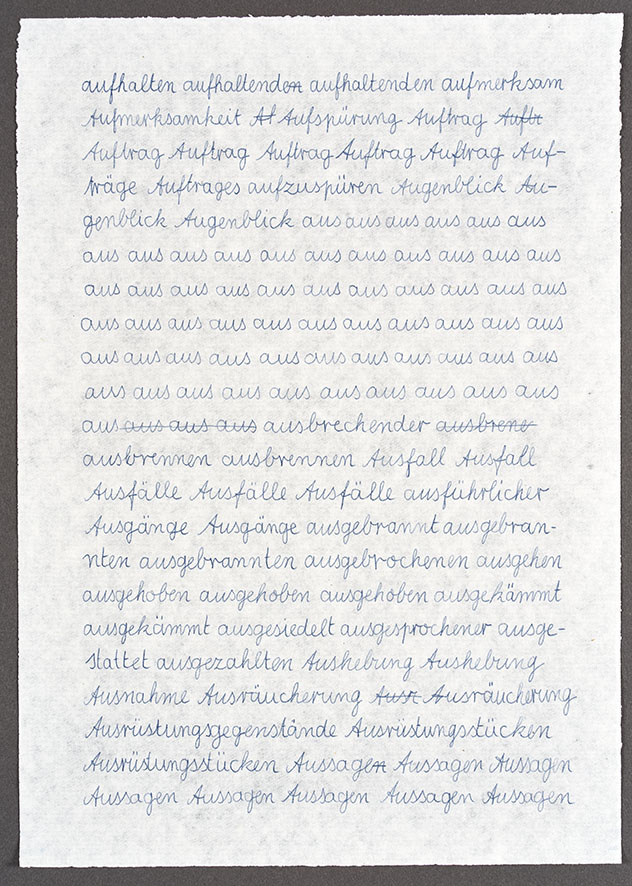 aufhalten aufhaltenden aufhaltenden aufmerksam
Aufmerksamheit Af Aufspürung Auftrag Auftr
Auftrag Auftrag Auftrag Auftrag Auftrag Auf-
träge Auftrages aufzuspüren Augenblick Au-
genblick Augenblick aus aus aus aus aus aus
aus aus aus aus aus aus aus aus aus aus aus
aus aus aus aus aus aus aus aus aus aus aus
aus aus aus aus aus aus aus aus aus aus aus
aus aus aus aus aus aus aus aus aus aus aus
aus aus aus aus aus aus aus aus aus aus aus
aus aus aus aus ausbrechender ausbrene
ausbrennen ausbrennen Ausfall Ausfall
Ausfälle Ausfälle Ausfälle ausführlicher
Ausgänge Ausgänge ausgebrannt ausgebran-
nten ausgebrannten ausgebrochenen ausgehen
ausgehoben ausgehoben ausgehoben ausgekämmt
ausgekämmt ausgesiedelt ausgesprochener ausge-
stattet ausgezahlten Aushebung Aushebung
Ausnahme Ausräucherung Ausr Ausräucherung
Ausrüstungsgegenstände Ausrüstungsstücken
Ausrüstungsstücken Aussagen Aussagen Aussagen
Aussagen Aussagen Aussagen Aussagen Aussagen